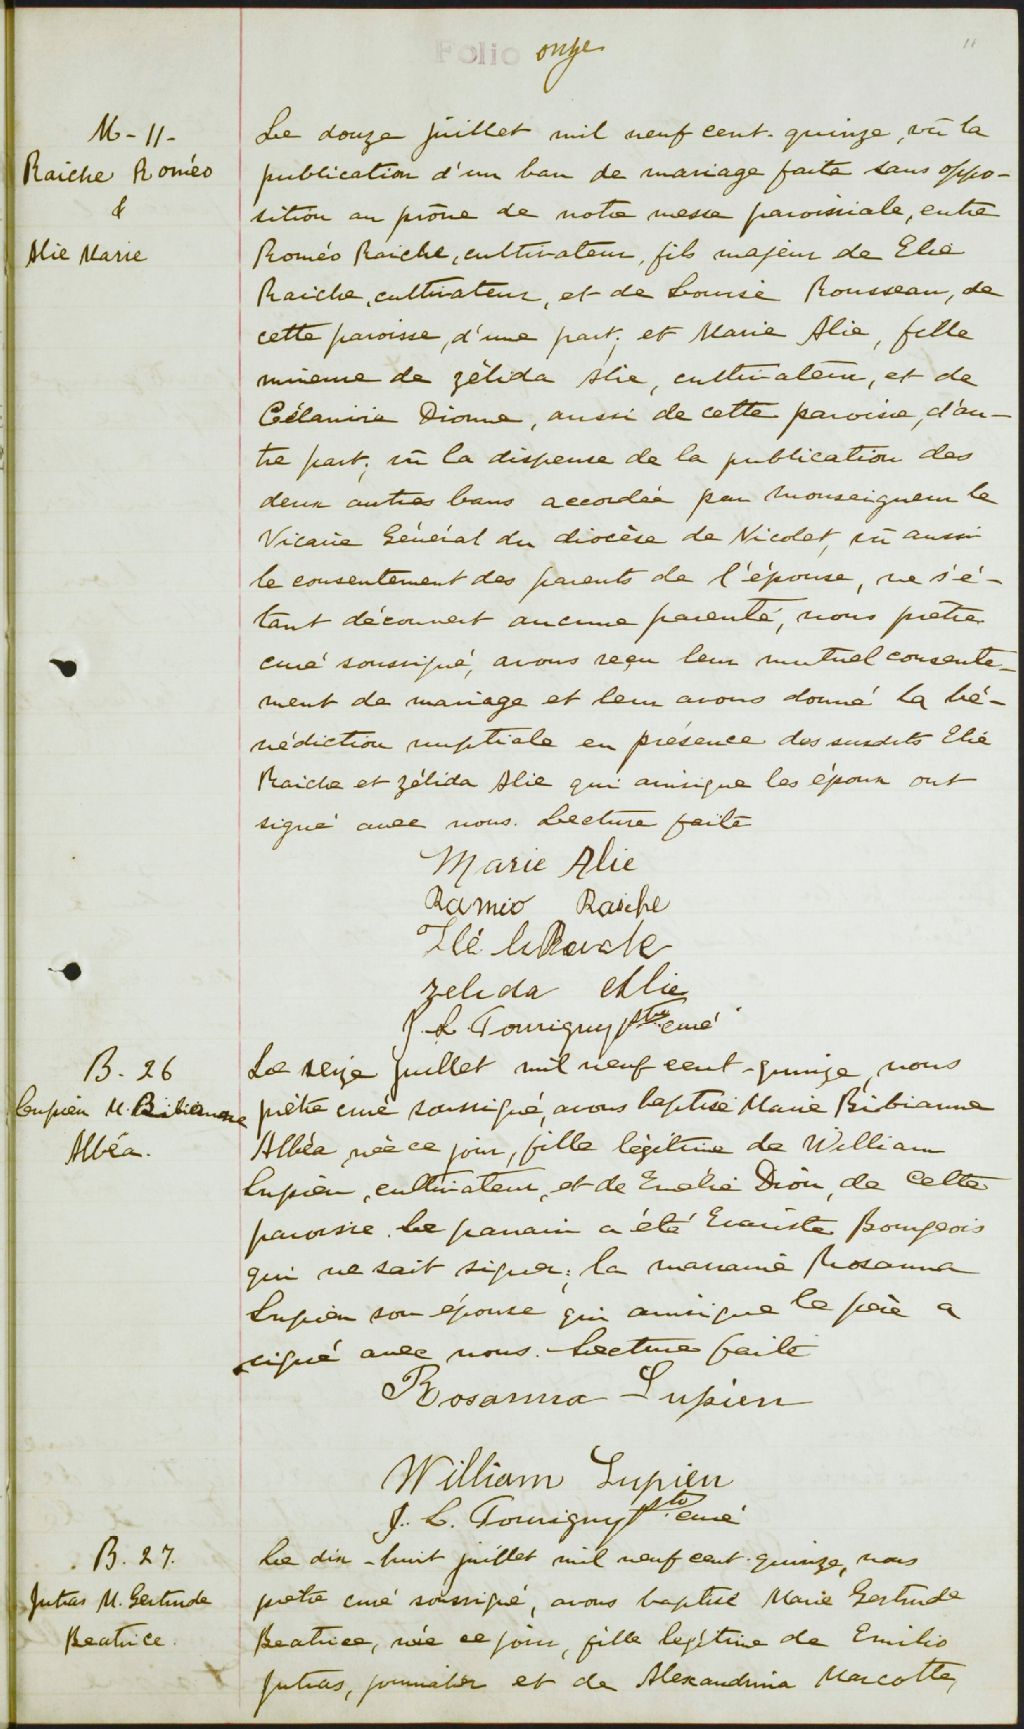 Folio onze
11
M-11-
Raiche Roméo
&
Alie Marie
Le douze juillet mil neuf cent-quinze, vû la
publication d'un ban de mariage faite sans oppo-
sition au prône de notre messe paroissiale, entre
Roméo Raiche, cultivateur, fils majeur de Elie
Raiche, cultivateur, et de Louise Rousseau, de
cette paroisse, d'une part; et Marie Alie, fille
mineure de Zélida Alie, cultivateur, et de
Célanire Dionne, aussi de cette paroisse, d'au-
tre part; vû la dispense de la publication des
deux autres bans accordée par Monseigneur le
Vicaire Général du diocèse de Nicolet, vû aussi
le consentement des parents de l'épouse, ne s'é-
tant découvert aucune parenté, nous prêtre
curé soussigné, avons reçu leur mutuel consente-
ment de mariage et leur avons donné la bé-
nédiction nuptiale en présence des susdits Elie
Raiche et Zélida Alie qui ainsique les époux ont
signé avec nous. Lecture faite
Marie Alie
Roméo Raiche
zelida Alie
J. L. Tourigny ptre curé
B. 26
Lupien M. Bibianne
Albéa.
Le seize juillet mil neuf cent-quinze, nous
prêtre curé soussigné, avons baptisé Marie Bibianne
Albéa née ce jour, fille légitime de William
Lupien, cultivateur, et de Emélie Dion, de cette
paroisse. Le parrain a été Evariste Bourgeois
qui ne sait signer; la marraine Rosanna
Lupien son épouse qui ainsique le père a
signé avec nous. Lecture faite
Rosanna Lupien
William Lupien
J. L. Tourigny ptre curé
B. 27.
Jutras M. Gertrude
Beatrice.
Le dix-huit juillet mil neuf cent-quinze, nous
prêtre curé soussigné, avons baptisé Marie Gertrude
Beatrice, née ce jour, fille legitime de Emilio
Jutras, journalier et de Alexandrina Marcotte,